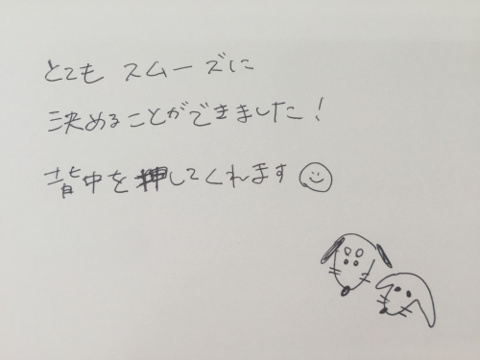 とても スムーズに
決めることができました！
背中を押してくれます